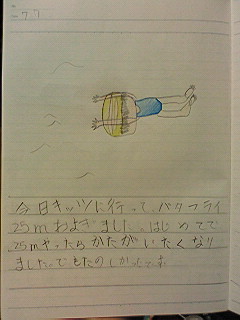 今日キッツに行って、バタフライ
25mおよぎました。はじめてで
25mやったらかたがいたくなり
ました。でもたのしかったです